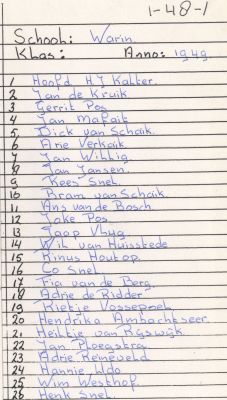 1-48-1
School: Warin
Klas: Anno: 1949
1 Hoofd H.J Kalter.
2 Jan de Kruik
3 Gerrit Pos
4 Jan Mafait
5 Dick van Schaik
6 Arie Verkaik
7 Jan Wittig
8 Jan Jansen.
9 Kees Snel
10 Bram van Schaik
11 Ans van de Bosch
12 Joke Pos
13 Jaap Vlug
14 Wil van Huisstede
15 Rinus Houtop
16 Co Snel
17 Fia van de Berg.
18 Adrie de Ridder
19 Rietje Vossepoel
20 Hendrika Ambachtseer.
21 Heiltje van Rijswijk
22 Jan Ploegstra
23 Adrie Remeveld
24 Hannie Udo
25 Wim Westhof
26 Henk Snel